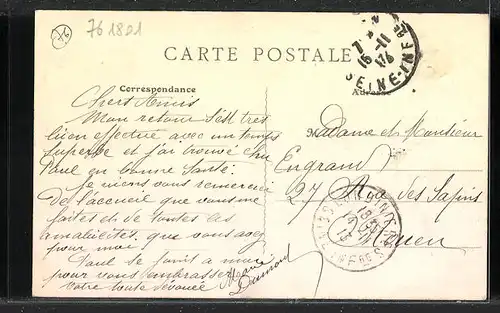 76
761801
CARTE POSTALE
Correspondance
Adresse
Chers Amis
Mon retour s'est très
bien effectué avec un temps
superbe et j'ai trouvé
Paul en bonne santé.
Je viens vous remercier
de l'accueil que vous me
faites et de toutes les
amabilités, que vous avez
pour moi
Paul se joint à moi
pour vous embrasser
Votre toute dévouée
Marie
Madame et Monsieur
Engrand
27 Rue des Sapins
Rouen
16-11
SEINE-INFRE